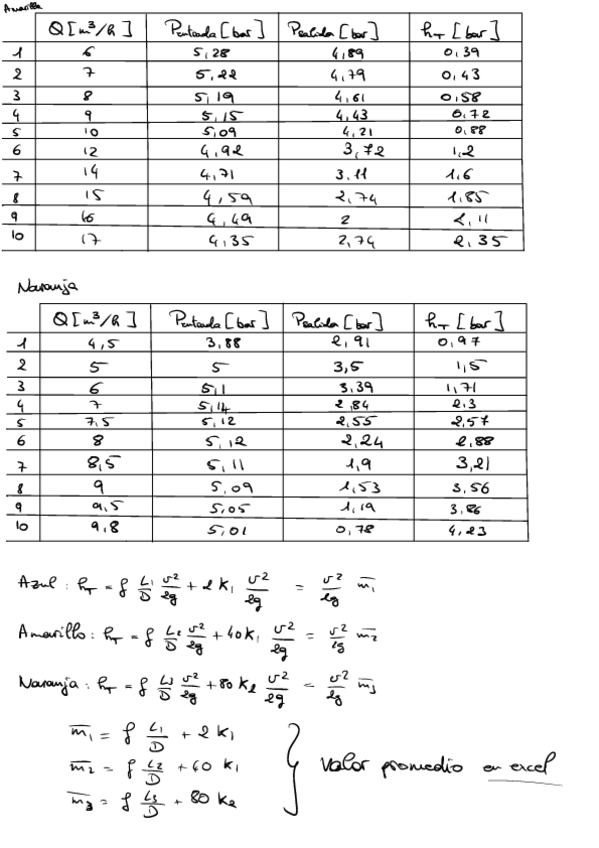 Amarilla
Q [m³/h] Pentrada [bar] Psalida [bar] hT [bar]
1 6 5,28 4,89 0,39
2 7 5,22 4,79 0,43
3 8 5,19 4,61 0,58
4 9 5,15 4,43 0,72
5 10 5,09 4,21 0,88
6 12 4,92 3,72 1,2
7 14 4,71 3,11 1,6
8 15 4,59 2,74 1,85
9 16 4,49 2 2,11
10 17 4,35 2,74 2,35
Naranja
Q [m³/h] Pentrada [bar] Psalida [bar] hT [bar]
1 4,5 3,88 2,91 0,97
2 5 5 3,5 1,5
3 6 5,1 3,39 1,71
4 7 5,14 2,84 2,3
5 7,5 5,12 2,55 2,57
6 8 5,12 2,24 2,88
7 8,5 5,11 1,9 3,21
8 9 5,09 1,53 3,56
9 9,5 5,05 1,19 3,86
10 9,8 5,01 0,78 4,23
Azul : hT = f L1/D v²/2g + 2 K1 v²/2g = v²/2g m̅1
Amarillo : hT = f L2/D v²/2g + 40 K1 v²/2g = v²/2g m̅2
Naranja : hT = f L3/D v²/2g + 80 K2 v²/2g = v²/2g m̅3
m̅1 = f L1/D + 2 K1
m̅2 = f L2/D + 40 K1 } Valor promedio en excel
m̅3 = f L3/D + 80 K2